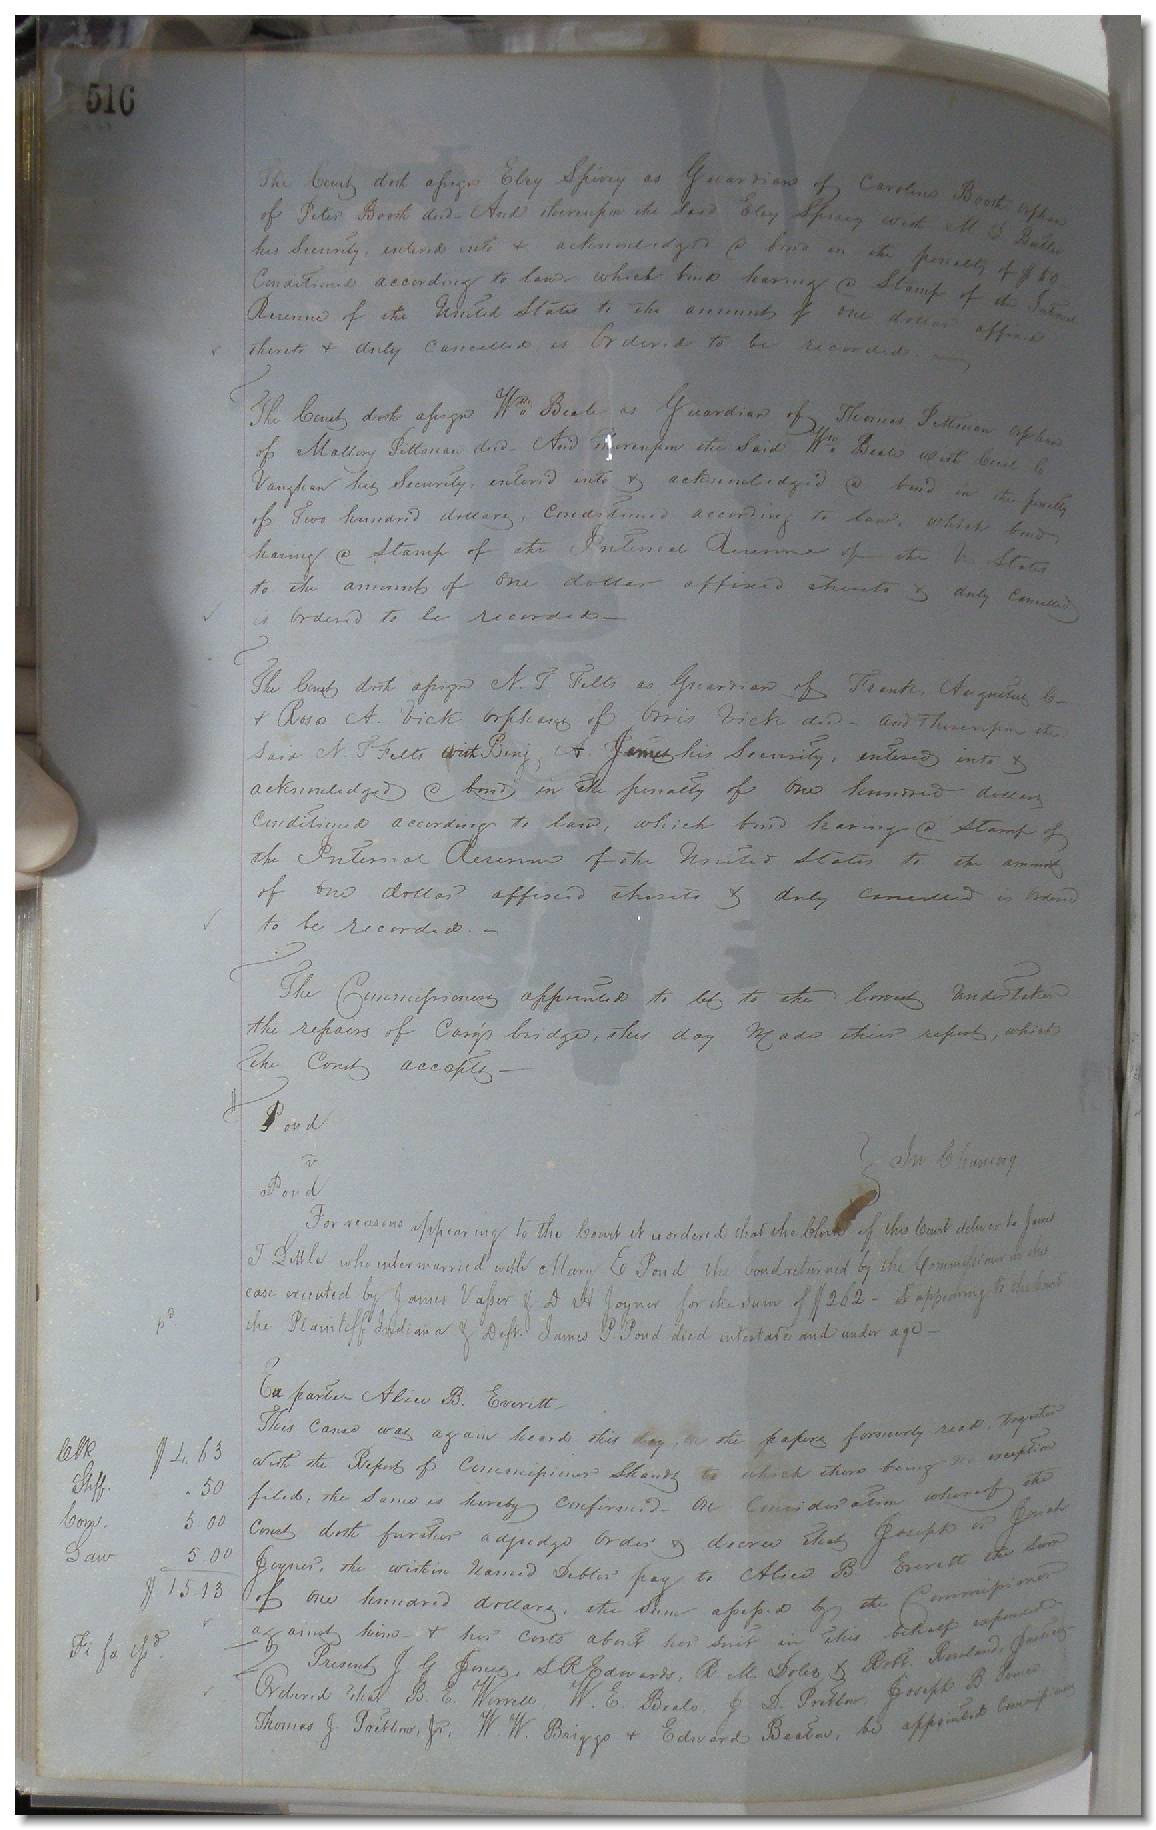 516
The Court doth assign Eley Spivey as Guardian of Caroline Booth orphan
of Peter Booth decd - And thereupon the said Eley Spivey with M D Butler
his Security, entered into & acknowledged a bond in the penalty of $60
Conditioned according to law which bond having a Stamp of the Internal
Revenue of the United States to the amount of one dollar affixed
thereto & duly cancelled is Ordered to be recorded.
The Court doth assign Wm Beale as Guardian of Thomas Pittman orphan
of Mallory Pittman decd - And thereupon the Said Wm Beale with
Vaughan his Security, entered into & acknowledged a bond in the penalty
of Two hundred dollars, conditioned according to law, which bond
having a Stamp of the Internal Revenue of the U States
to the amount of One dollar affixed thereto & duly cancelled
is ordered to be recorded -
The Court doth assign N. T Felts as Guardian of Frank, Augustus C -
& Rosa A. Vick orphans of Orris Vick decd - and thereupon the
said N. T Felts with Benj. A. James his Security, entered into &
acknowledged a bond in the penalty of One hundred dollars
conditioned according to law, which bond having a Stamp of
the Internal Revenue of the United States to the amount
of one dollar affixed thereto & duly cancelled is ordered
to be recorded. -
The Commissioners appointed to let to the lowest Undertaker
the repairs of Cary's bridge, this day Made their report, which
the Court accepts -
Pond
v
Pond
In Chancery
For reasons appearing to the Court it is ordered that the Clerk of this Court deliver to James
T Little who intermarried with Mary E Pond the bond returned by the Commissioner in this
case executed by James Vasser & D H Joyner for the sum of $262 - It appearing to the Court
the Plaintiff Indiana & Deft. James P Pond died intestate and under age -
pd
Ex parte Alice B. Everett
This cause was again heard this day, on the papers formerly read, together
with the Report of Commissioner Shands to which there being no exception
filed, the same is hereby confirmed. On Consideration whereof the
Court doth further adjudge order & decree that Joseph or Josiah
Joyner, the within named Debtor pay to Alice B Everett the sum
of One hundred dollars, the sum assessed by the Commissioner
against him & her costs about her suit in this behalf expended
Clk $4.63
Shff. .50
Com. 5 00
Law 5.00
$15 13
Fi fa isd.
Present J G Jones, S R Edwards, R. M. Doles & Robt. Rowland, Justices
Ordered that B. E. Worrell, W. E. Beale, J D. Pretlow, Joseph B Jones
Thomas J. Pretlow, Jr. W. W. Briggs & Edward Beaton, be appointed Commissioners